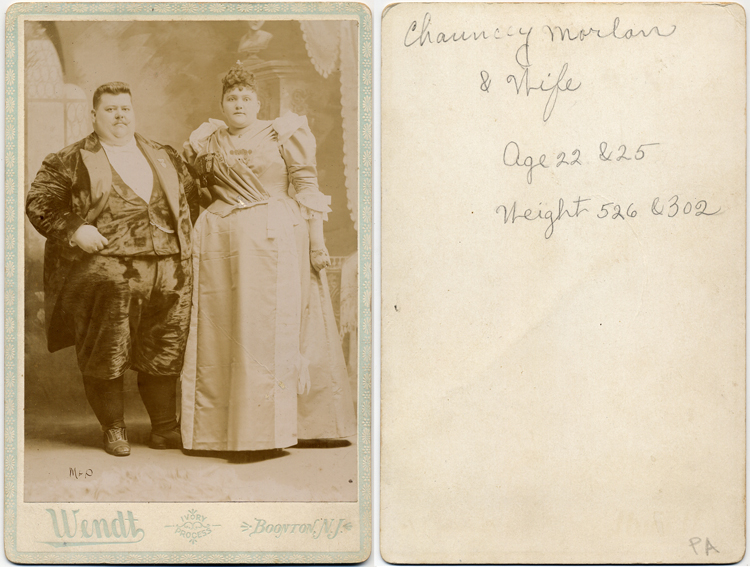 Wendt
IVORY
PROCESS
BOONTON, N.J.
Chauncey Morlan
& Wife
Age 22 & 25
Weight 526 & 302
PA